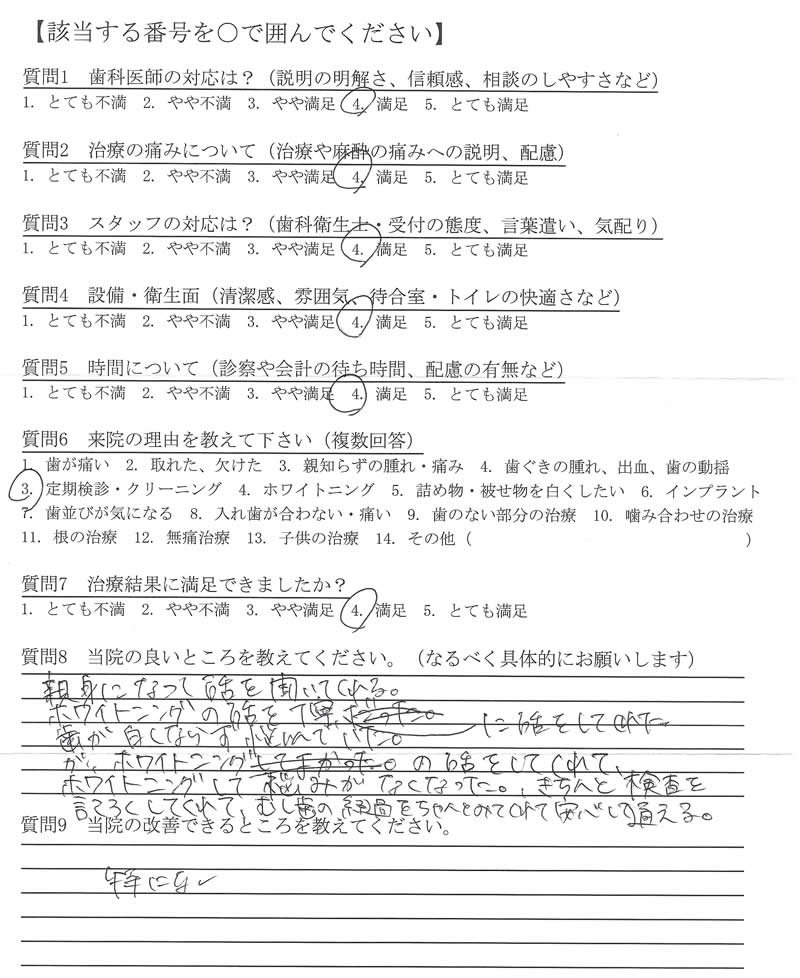 【該当する番号を〇で囲んでください】
質問1　歯科医師の対応は？（説明の明解さ、信頼感、相談のしやすさなど）
1. とても不満　2. やや不満　3. やや満足　4. 満足　5. とても満足
質問2　治療の痛みについて（治療や麻酔の痛みへの説明、配慮）
1. とても不満　2. やや不満　3. やや満足　4. 満足　5. とても満足
質問3　スタッフの対応は？（歯科衛生士・受付の態度、言葉遣い、気配り）
1. とても不満　2. やや不満　3. やや満足　4. 満足　5. とても満足
質問4　設備・衛生面（清潔感、雰囲気、待合室・トイレの快適さなど）
1. とても不満　2. やや不満　3. やや満足　4. 満足　5. とても満足
質問5　時間について（診察や会計の待ち時間、配慮の有無など）
1. とても不満　2. やや不満　3. やや満足　4. 満足　5. とても満足
質問6　来院の理由を教えて下さい（複数回答）
1. 歯が痛い　2. 取れた、欠けた　3. 親知らずの腫れ・痛み　4. 歯ぐきの腫れ、出血、歯の動揺
3. 定期検診・クリーニング　4. ホワイトニング　5. 詰め物・被せ物を白くしたい　6. インプラント
7. 歯並びが気になる　8. 入れ歯が合わない・痛い　9. 歯のない部分の治療　10. 噛み合わせの治療
11. 根の治療　12. 無痛治療　13. 子供の治療　14. その他（　　　）
質問7　治療結果に満足できましたか？
1. とても不満　2. やや不満　3. やや満足　4. 満足　5. とても満足
質問8　当院の良いところを教えてください。（なるべく具体的にお願いします）
親身になって話を聞いてくれる。
ホワイトニングの話を丁寧に話をしてくれた
歯が白くならず悩んでいた。
が、ホワイトニングの話をしてくれて、
ホワイトニングして悩みがなくなった。、きちんと検査を
してくれて、むし歯の経過をちゃんとみてくれて安心して通える。
質問9　当院の改善できるところを教えてください。
特にない